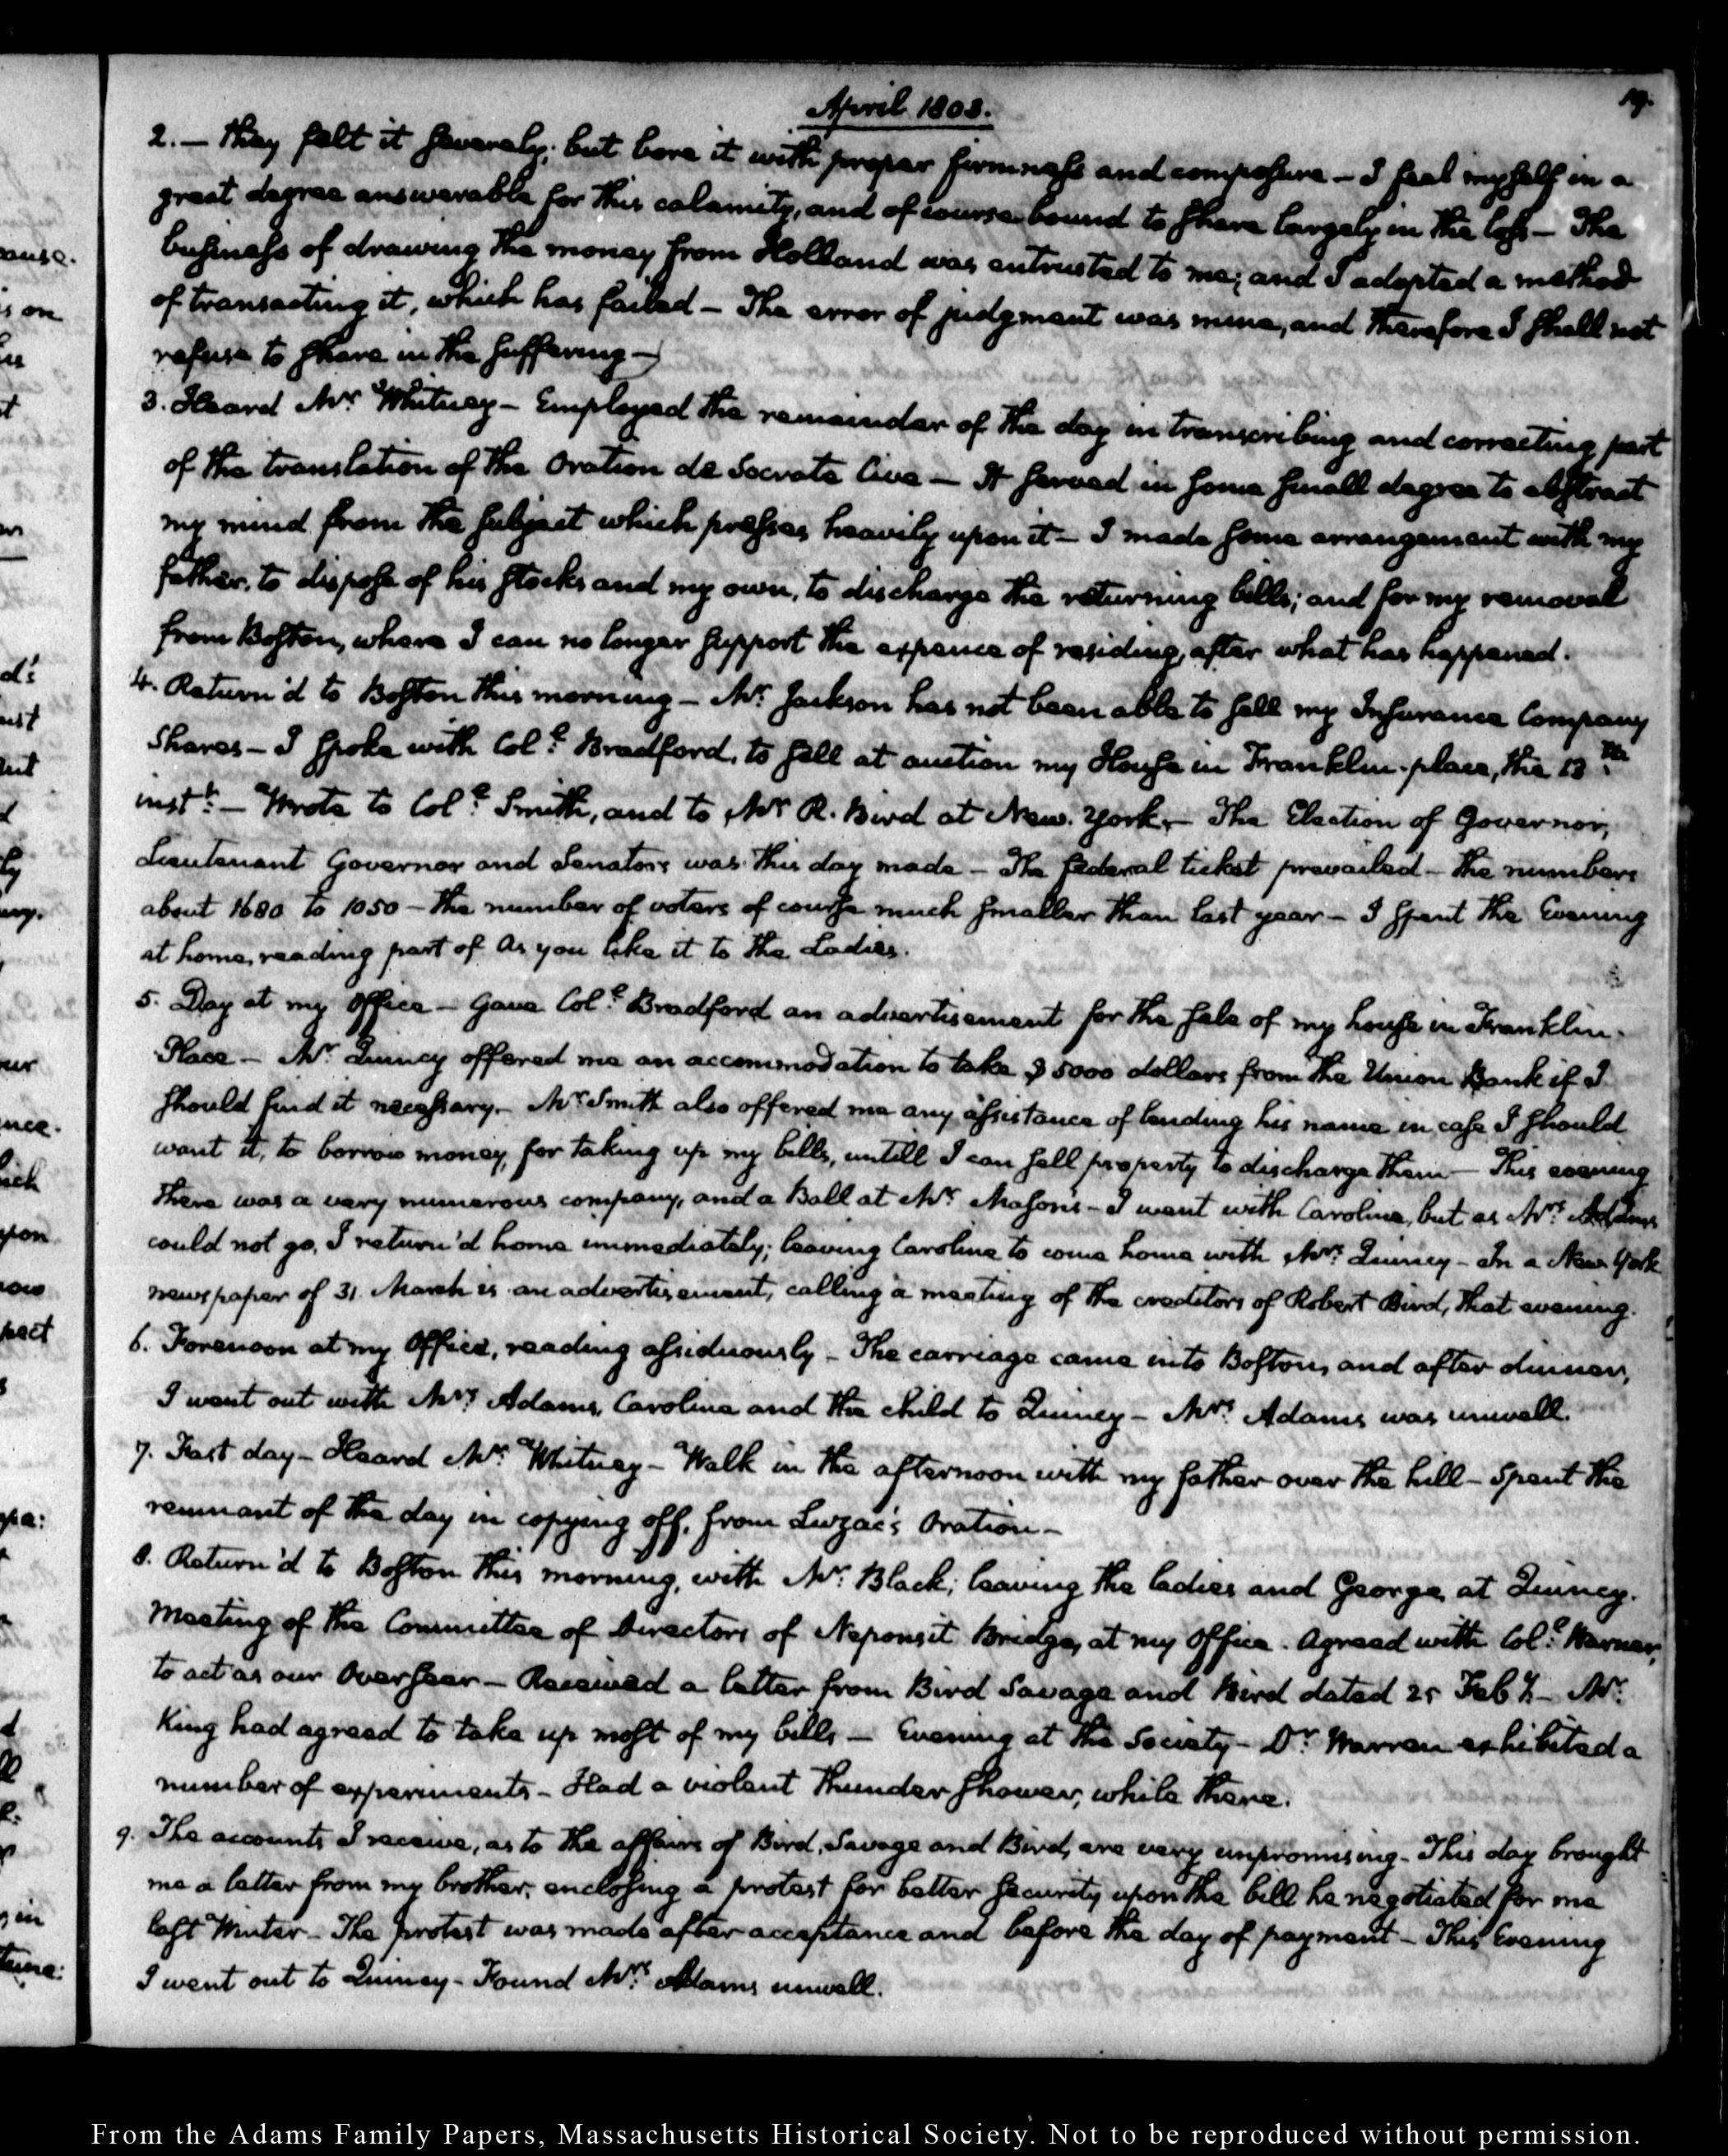 April 1803.
19.
2. — They felt it severely; but bore it with proper firmness and composure — I feel myself in a
great degree answerable for this calamity, and of course bound to share largely in the loss — The
business of drawing the money from Holland was entrusted to me; and I adopted a method
of transacting it, which has failed — The error of judgment was mine, and therefore I shall not
refuse to share in the suffering —
3. Heard Mr. Whitney — Employed the remainder of the day in transcribing and correcting part
of the translation of the Oration de Socrate Cive — It served in some small degree to abstract
my mind from the subject which presses heavily upon it — I made some arrangement with my
father, to dispose of his stocks and my own, to discharge the returning bills; and for my removal
from Boston, where I can no longer support the expence of residing, after what has happened.
4. Return'd to Boston this morning — Mr. Jackson has not been able to sell my Insurance Company
Shares — I spoke with Coll. Bradford, to sell at auction my House in Franklin-place, the 13th.
instt. — Wrote to Coll. Smith, and to Mr. R. Bird at New-York. — The Election of Governor,
Lieutenant Governor and Senators was this day made — The federal ticket prevailed — the numbers
about 1680 to 1050 — the number of voters of course much smaller than last year — I spent the Evening
at home, reading part of As you like it to the Ladies.
5. Day at my Office — Gave Coll. Bradford an advertisement for the sale of my house in Franklin-
Place — Mr. Quincy offered me an accommodation to take $5000 dollars from the Union Bank if I
should find it necessary. Mr. Smith also offered me any assistance of lending his name in case I should
want it, to borrow money, for taking up my bills, untill I can sell property to discharge them — This evening
there was a very numerous company, and a Ball at Mr. Mason's — I went with Caroline, but as Mrs. Adams
could not go, I return'd home immediately; leaving Caroline to come home with Mrs. Quincy — In a New York
newspaper of 31. March is an advertisement, calling a meeting of the creditors of Robert Bird, that evening.
6. Forenoon at my Office, reading assiduously — The carriage came into Boston, and after dinner,
I went out with Mrs. Adams, Caroline and the child to Quincy — Mrs. Adams was unwell.
7. Fast day — Heard Mr. Whitney — Walk in the afternoon with my father over the hill — Spent the
remnant of the day in copying off, from Luzac's Oration —
8. Return'd to Boston this morning, with Mr. Black; leaving the ladies and George, at Quincy.
Meeting of the Committee of Directors of Neponsit Bridge, at my Office. Agreed with Coll. Warner,
to act as our Overseer — Received a letter from Bird Savage and Bird dated 25 Feby. — Mr.
King had agreed to take up most of my bills — Evening at the Society — Dr. Warren exhibited a
number of experiments — Had a violent thunder shower, while there.
9. The accounts I receive, as to the affairs of Bird, Savage and Bird, are very unpromising — This day brought
me a letter from my brother, enclosing a protest for better security upon the bill he negotiated for me
last Winter — The protest was made after acceptance and before the day of payment — This Evening
I went out to Quincy — Found Mrs. Adams unwell.
From the Adams Family Papers, Massachusetts Historical Society. Not to be reproduced without permission.